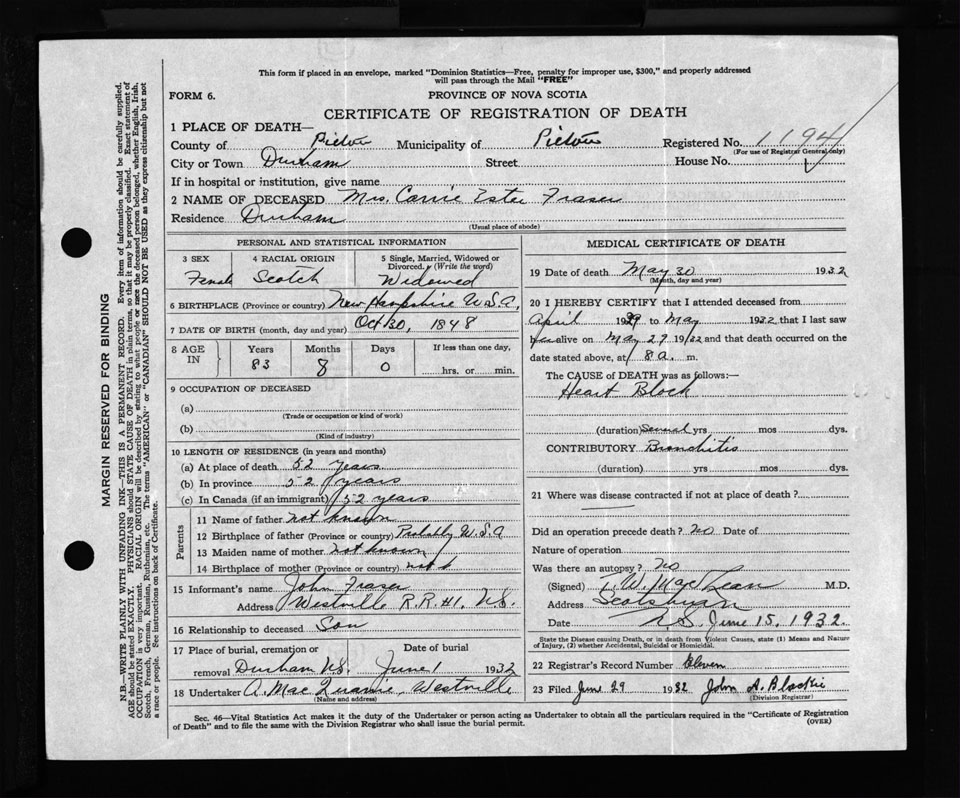 This form if placed in an envelope, marked "Dominion Statistics—Free, penalty for improper use, $300," and properly addressed
will pass through the Mail "FREE"
FORM 6. PROVINCE OF NOVA SCOTIA
CERTIFICATE OF REGISTRATION OF DEATH
1 PLACE OF DEATH—
County of Pictou Municipality of Pictou Registered No. 1194
(For use of Registrar General only)
City or Town Durham Street House No.
If in hospital or institution, give name
2 NAME OF DECEASED Mrs. Carrie Ester Fraser
Residence Durham
(Usual place of abode)
PERSONAL AND STATISTICAL INFORMATION
3 SEX 4 RACIAL ORIGIN 5 Single, Married, Widowed or
Divorced. (Write the word)
Female Scotch Widowed
6 BIRTHPLACE (Province or country) New Hampshire U.S.A.
7 DATE OF BIRTH (month, day and year) Oct 30, 1848
8 AGE IN Years Months Days If less than one day,
83 8 0 hrs. or min.
9 OCCUPATION OF DECEASED
(a)
(Trade or occupation or kind of work)
(b)
(Kind of industry)
10 LENGTH OF RESIDENCE (in years and months)
(a) At place of death 52 years
(b) In province 52 years
(c) In Canada (if an immigrant) 52 years
Parents
11 Name of father not known
12 Birthplace of father (Province or country) Probably U.S.A
13 Maiden name of mother not known
14 Birthplace of mother (Province or country) not k
15 Informant's name John Fraser
Address Westville R.R.#1, N.S.
16 Relationship to deceased Son
17 Place of burial, cremation or Date of burial
removal Durham N.S. June 1 1932
18 Undertaker A. MacQuarrie, Westville
(Name and address)
MEDICAL CERTIFICATE OF DEATH
19 Date of death May 30 1932
(Month, day and year)
20 I HEREBY CERTIFY that I attended deceased from
April 1929 to May 1932 that I last saw
her alive on May 27 1932 and that death occurred on the
date stated above, at 8 a. m.
The CAUSE of DEATH was as follows:—
Heart Block
(duration) Several yrs mos dys.
CONTRIBUTORY Bronchitis
(duration) yrs mos dys.
21 Where was disease contracted if not at place of death?
Did an operation precede death? No Date of
Nature of operation
Was there an autopsy? No
(Signed) W. MacLean M.D.
Address Scotsman
Date N.S. June 15, 1932.
State the Disease causing Death, or in death from Violent Causes, state (1) Means and Nature
of Injury, (2) whether Accidental, Suicidal or Homicidal.
22 Registrar's Record Number Eleven
23 Filed June 29 1932 John A. Blackie
(Division Registrar)
Sec. 46—Vital Statistics Act makes it the duty of the Undertaker or person acting as Undertaker to obtain all the particulars required in the "Certificate of Registration
of Death" and to file the same with the Division Registrar who shall issue the burial permit.
(OVER)
MARGIN RESERVED FOR BINDING
N.B.—WRITE PLAINLY WITH UNFADING INK—THIS IS A PERMANENT RECORD. Every item of information should be carefully supplied.
AGE should be stated EXACTLY. PHYSICIANS should STATE CAUSE OF DEATH in plain terms, so that it may be properly classified. Exact statement of
OCCUPATION is very important. RACIAL ORIGIN will be described by stating to what people or race the deceased person belonged, whether English, Irish,
Scotch, French, German, Russian, Ruthenian, etc. The terms "AMERICAN" or "CANADIAN" SHOULD NOT BE USED as they express citizenship but not
a race or people. See instructions on back of Certificate.